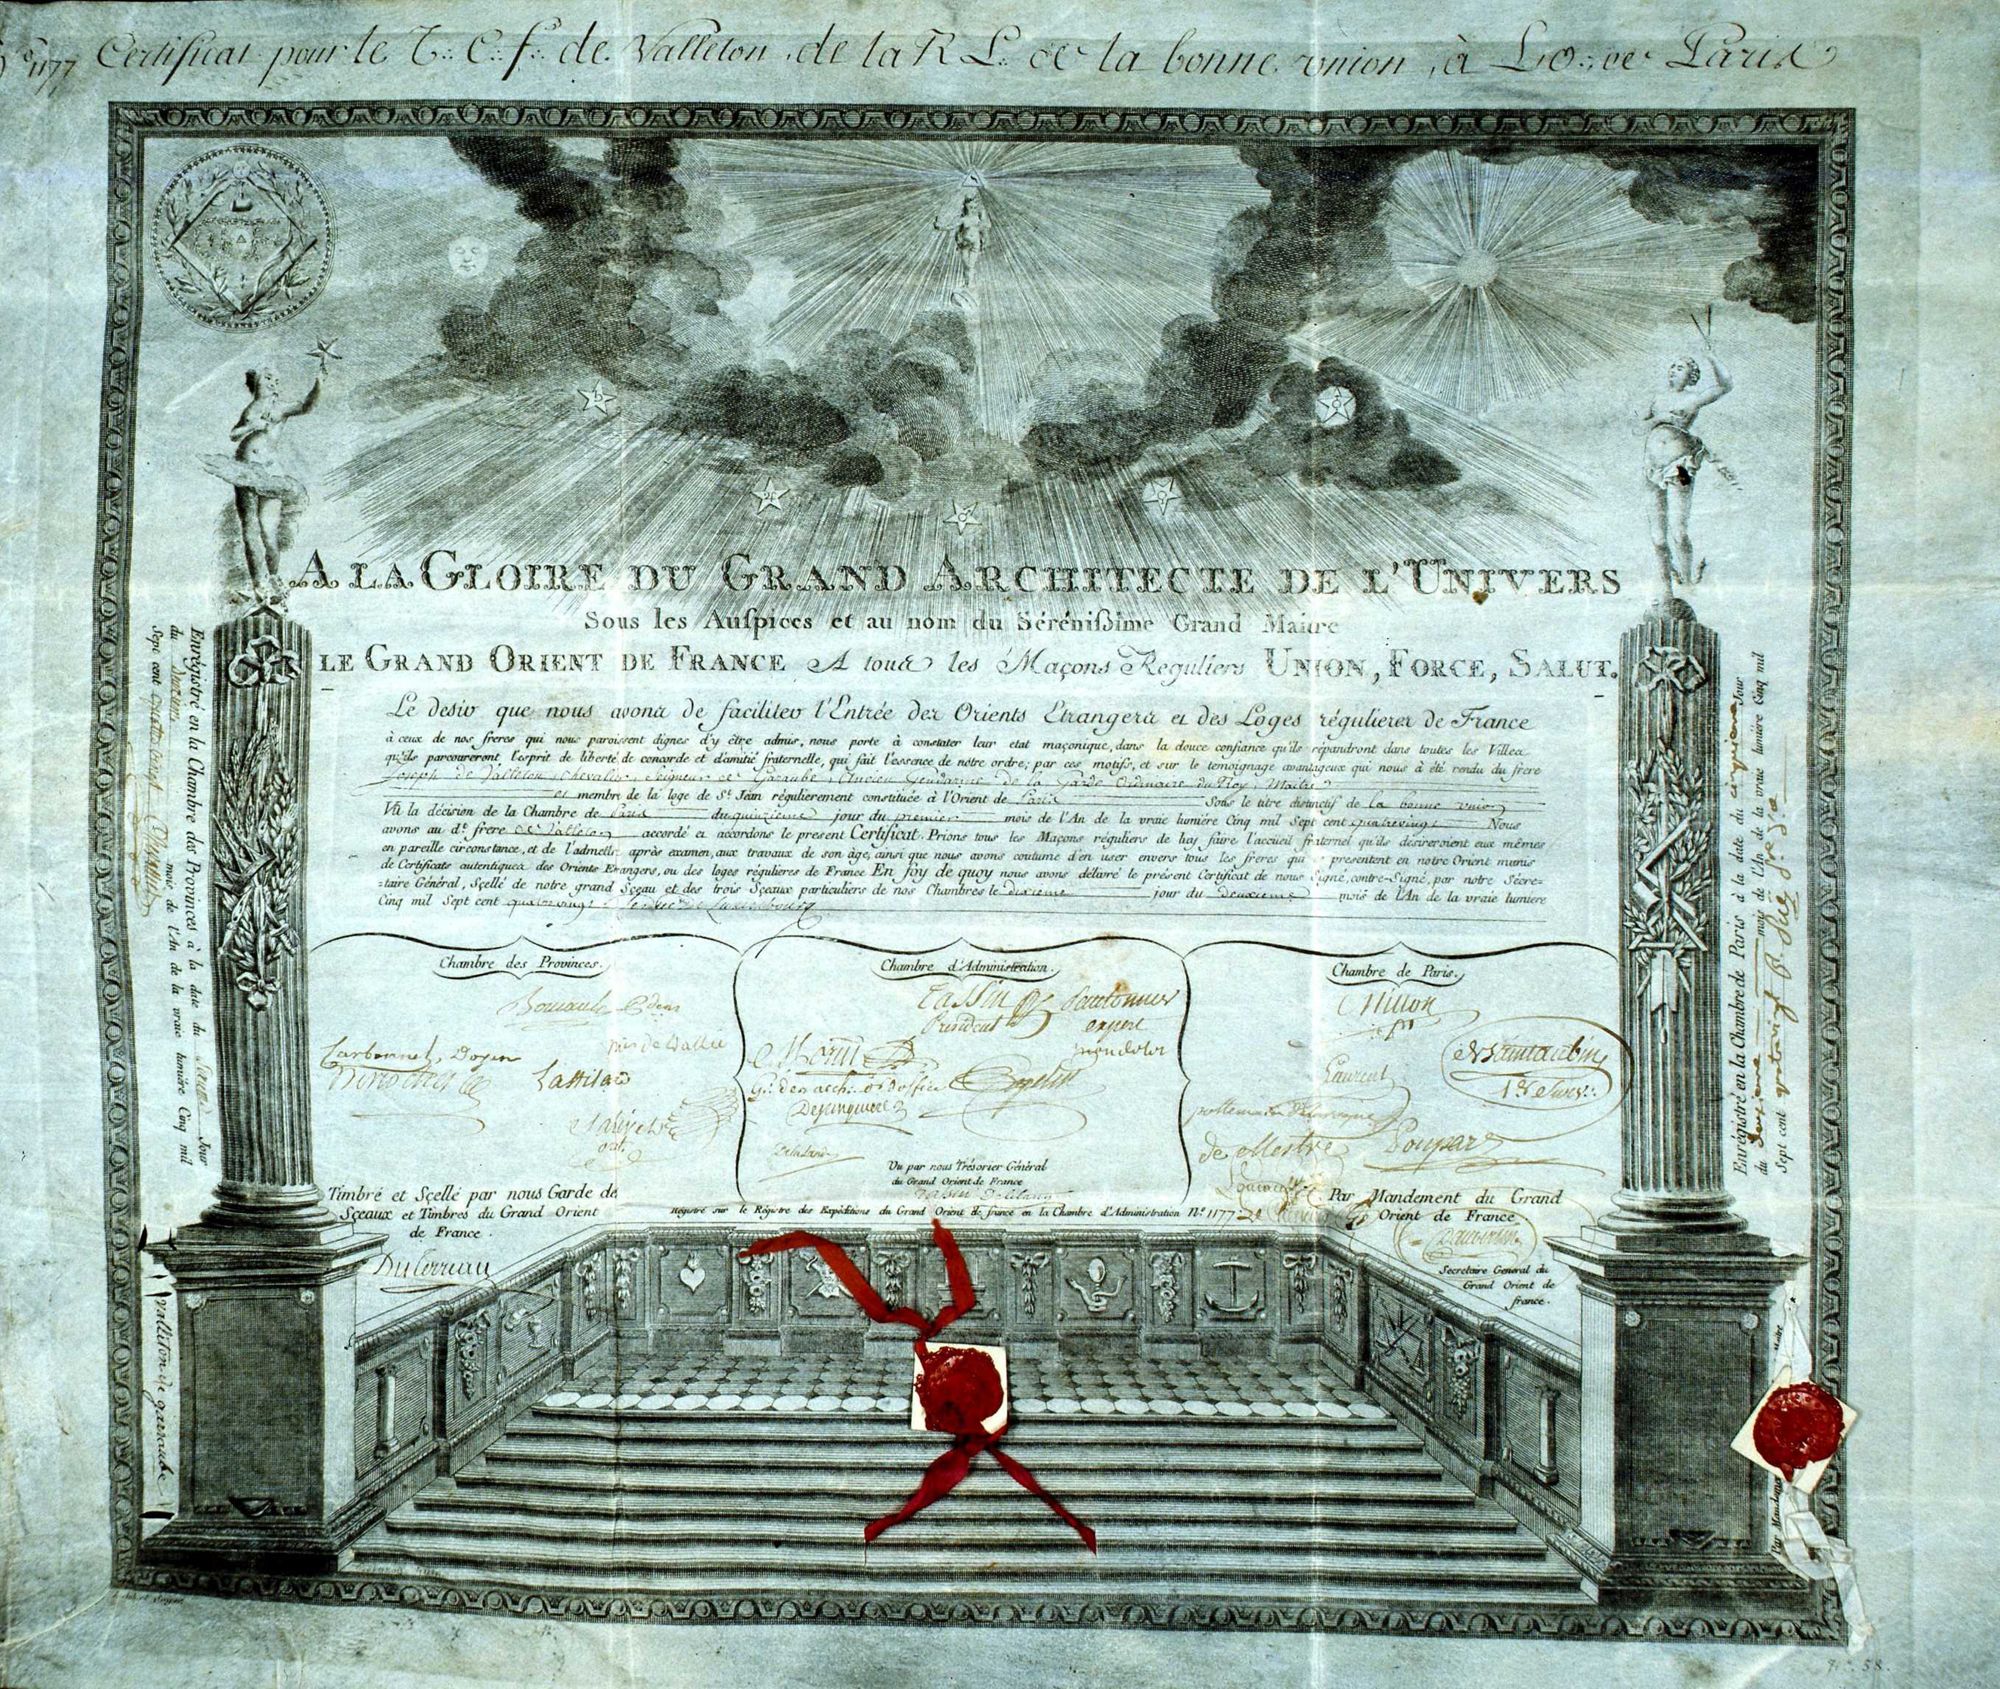 1177 Certificat pour le T∴ C∴ f∴ de Valleton, de la R L∴ de la bonne union, à L'O∴ de Paris
A LA GLOIRE DU GRAND ARCHITECTE DE L'UNIVERS
Sous les Auspices et au nom du Sérénissime Grand Maitre
LE GRAND ORIENT DE FRANCE A tous les Maçons Reguliers UNION, FORCE, SALUT.
Le desir que nous avons de faciliter l'Entrée des Orients Etrangers et des Loges régulieres de France
à ceux de nos freres qui nous paroissent dignes d'y être admis, nous porte à constater leur etat maçonique, dans la douce confiance qu'ils répandront dans toutes les Villes
qu'ils parcoureront, l'esprit de liberté, de concorde et d'amitié fraternelle, qui fait l'essence de notre ordre; par ces motifs, et sur le temoignage avantageux qui nous à été rendu du frere
Joseph de Valleton, Chevalier, Seigneur de Garaube, Ancien Gendarme de la Garde Ordinaire du Roy, Maitre
et membre de la loge de St. Jean régulierement constituée à l'Orient de Paris Sous le titre distinctif de la bonne union
Vû la décision de la Chambre de Paris du quinzieme jour du premier mois de l'An de la vraie lumiere Cinq mil Sept cent quatrevingt Nous
avons au dt. frere de Valleton accordé et accordons le present Certificat. Prions tous les Maçons réguliers de luy faire l'accueil fraternel qu'ils désireroient eux mêmes
en pareille circonstance, et de l'admettre après examen, aux travaux de son âge, ainsi que nous avons coutume d'en user envers tous les freres qui se presentent en notre Orient munis
de Certificats autentiques des Orients Etrangers, ou des loges régulieres de France En foy de quoy nous avons délivré le présent Certificat de nous Signé, contre-Signé, par notre Sécre-
-taire Général, Scellé de notre grand Sceau et des trois Sceaux particuliers de nos Chambres le dixieme jour du deuxieme mois de l'An de la vraie lumiere
Cinq mil Sept cent quatrevingt
Chambre des Provinces.
Carbonnel, Doyen
Chambre d'Administration.
Tassin
President
Pautonnier
expert
Desjunquieres
Delalande
Vu par nous Trésorier Général
du Grand Orient de France
Tassin
Chambre de Paris.
Millon
Laurent
de Mestre
Poupart
Timbré et Sçellé par nous Garde de
Sçeaux et Timbres du Grand Orient
de France.
Registré sur le Régistre des Expéditions du Grand Orient de france en la Chambre d'Administration No. 1177
Par Mandement du Grand
Orient de France
Secretaire General du
Grand Orient de
france.
Enrégistré en la Chambre des Provinces à la date du Jour
du mois de l'An de la vraie lumiere Cinq mil
Sept cent quatre vingt
Enrégistré en la Chambre de Paris à la date du Jour
du mois de l'An de la vraie lumiere Cinq mil
Sept cent quatrevingt
valleton de garraube
Par Mandement
No. 58.